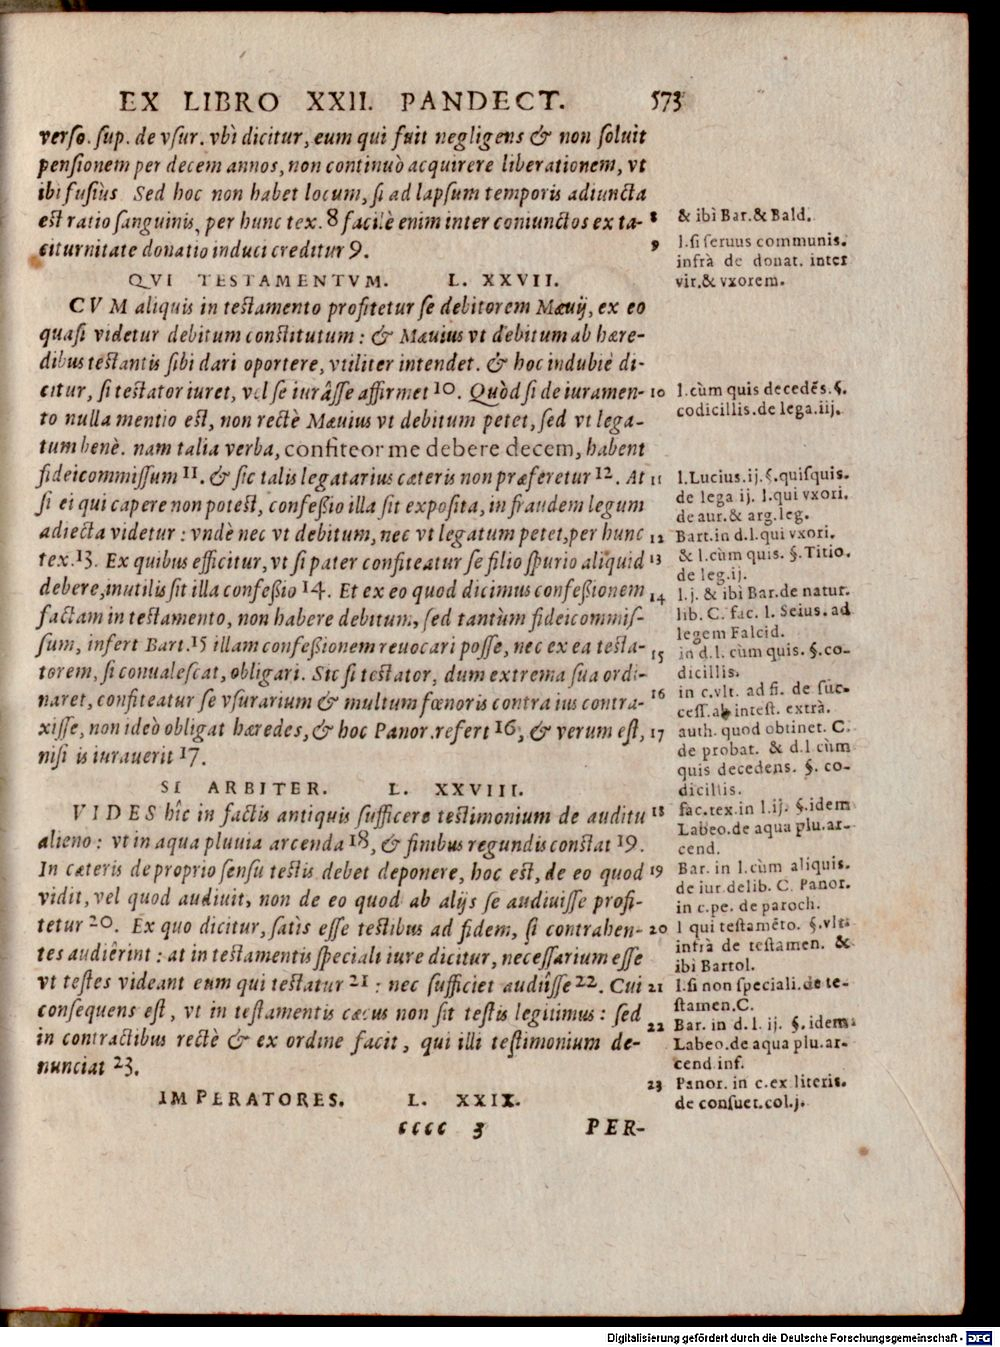 EX LIBRO XXII. PANDECT. 573
verſo. ſup. de vſur. vbì dicitur, eum qui fuit negligens & non ſoluit
penſionem per decem annos, non continuò acquirere liberationem, vt
ibi fuſiùs Sed hoc non habet locum, ſi ad lapſum temporis adiuncta
est ratio ſanguinis, per hunc tex. 8 facilè enim inter coniunctos ex ta-
citurnitate donatio induci creditur 9.
QVI TESTAMENTVM. L. XXVII.
CVM aliquis in testamento profitetur ſe debitorem Mæuij, ex eo
quaſi videtur debitum constitutum : & Mæuius vt debitum ab hære-
dibus testantis ſibi dari oportere, vtiliter intendet. & hoc indubiè di-
citur, ſi testator iuret, vel ſe iurâſſe affirmet 10. Quòd ſi de iuramen-
to nulla mentio est, non rectè Mæuius vt debitum petet, ſed vt lega-
tum benè. nam talia verba, confiteor me debere decem, habent
fideicommiſſum 11. & ſic talis legatarius cæteris non præferetur 12. At
ſi ei qui capere non potest, confeſſio illa ſit expoſita, in fraudem legum
adiecta videtur : vndè nec vt debitum, nec vt legatum petet, per hunc
tex. 13. Ex quibus efficitur, vt ſi pater confiteatur ſe filio ſpurio aliquid
debere, inutilis ſit illa confeſſio 14. Et ex eo quod dicimus confeſſionem
factam in testamento, non habere debitum, ſed tantùm fideicommiſ-
ſum, infert Bart. 15 illam confeſſionem reuocari poſſe, nec ex ea testa-
torem, ſi conualeſcat, obligari. Sic ſi testator, dum extrema ſua ordi-
naret, confiteatur ſe vſurarium & multum fœnoris contra ius contra-
xiſſe, non ideò obligat hæredes, & hoc Panor. refert 16, & verum est,
niſi is iurauerit 17.
SI ARBITER. L. XXVIII.
VIDES hîc in factis antiquis ſufficere testimonium de auditu
alieno : vt in aqua pluuia arcenda 18, & finibus regundis constat 19.
In cæteris de proprio ſenſu testis debet deponere, hoc est, de eo quod
vidit, vel quod audiuit, non de eo quod ab alijs ſe audiuiſſe profi-
tetur 20. Ex quo dicitur, ſatìs eſſe testibus ad fidem, ſi contrahen-
tes audiêrint : at in testamentis ſpeciali iure dicitur, neceſſarium eſſe
vt testes videant eum qui testatur 21 : nec ſufficiet audiîſſe 22. Cui
conſequens est, vt in testamentis cæcus non ſit testis legitimus : ſed
in contractibus rectè & ex ordine facit, qui illi testimonium de-
nunciat 23.
IMPERATORES. L. XXIX.
cccc 3 PER-
8 & ibì Bar. & Bald.
9 l. ſi ſeruus communis.
infrà de donat. inter
vir. & vxorem.
10 l. cùm quis decedẽs. §.
codicillis. de lega. iij.
11 l. Lucius. ij. §. quiſquis.
de lega ij. l. qui vxori.
de aur. & arg. leg.
12 Bart. in d. l. qui vxori.
13 & l. cùm quis. §. Titio.
de leg. ij.
14 l. j. & ibì Bar. de natur.
lib. C. fac. l. Seius. ad
legem Falcid.
15 in d. l. cùm quis. §. co-
dicillis.
16 in c. vlt. ad fi. de ſuc-
ceſſ. ab inteſt. extrà.
17 auth. quod obtinet. C.
de probat. & d. l cùm
quis decedens. §. co-
dicillis.
18 fac. tex. in l. ij. §. idem
Labeo. de aqua plu. ar-
cend.
19 Bar. in l. cùm aliquis.
de iur. delib. C. Panor.
in c. pe. de paroch.
20 l qui teſtamẽto. §. vlt.
infrà de teſtamen. &
ibi Bartol.
21 l. ſi non ſpeciali. de te-
ſtamen. C.
22 Bar. in d. l. ij. §. idem
Labeo. de aqua plu. ar-
cend. inf.
23 Panor. in c. ex literis.
de conſuet. col. j.
Digitalisierung gefördert durch die Deutsche Forschungsgemeinschaft - DFG